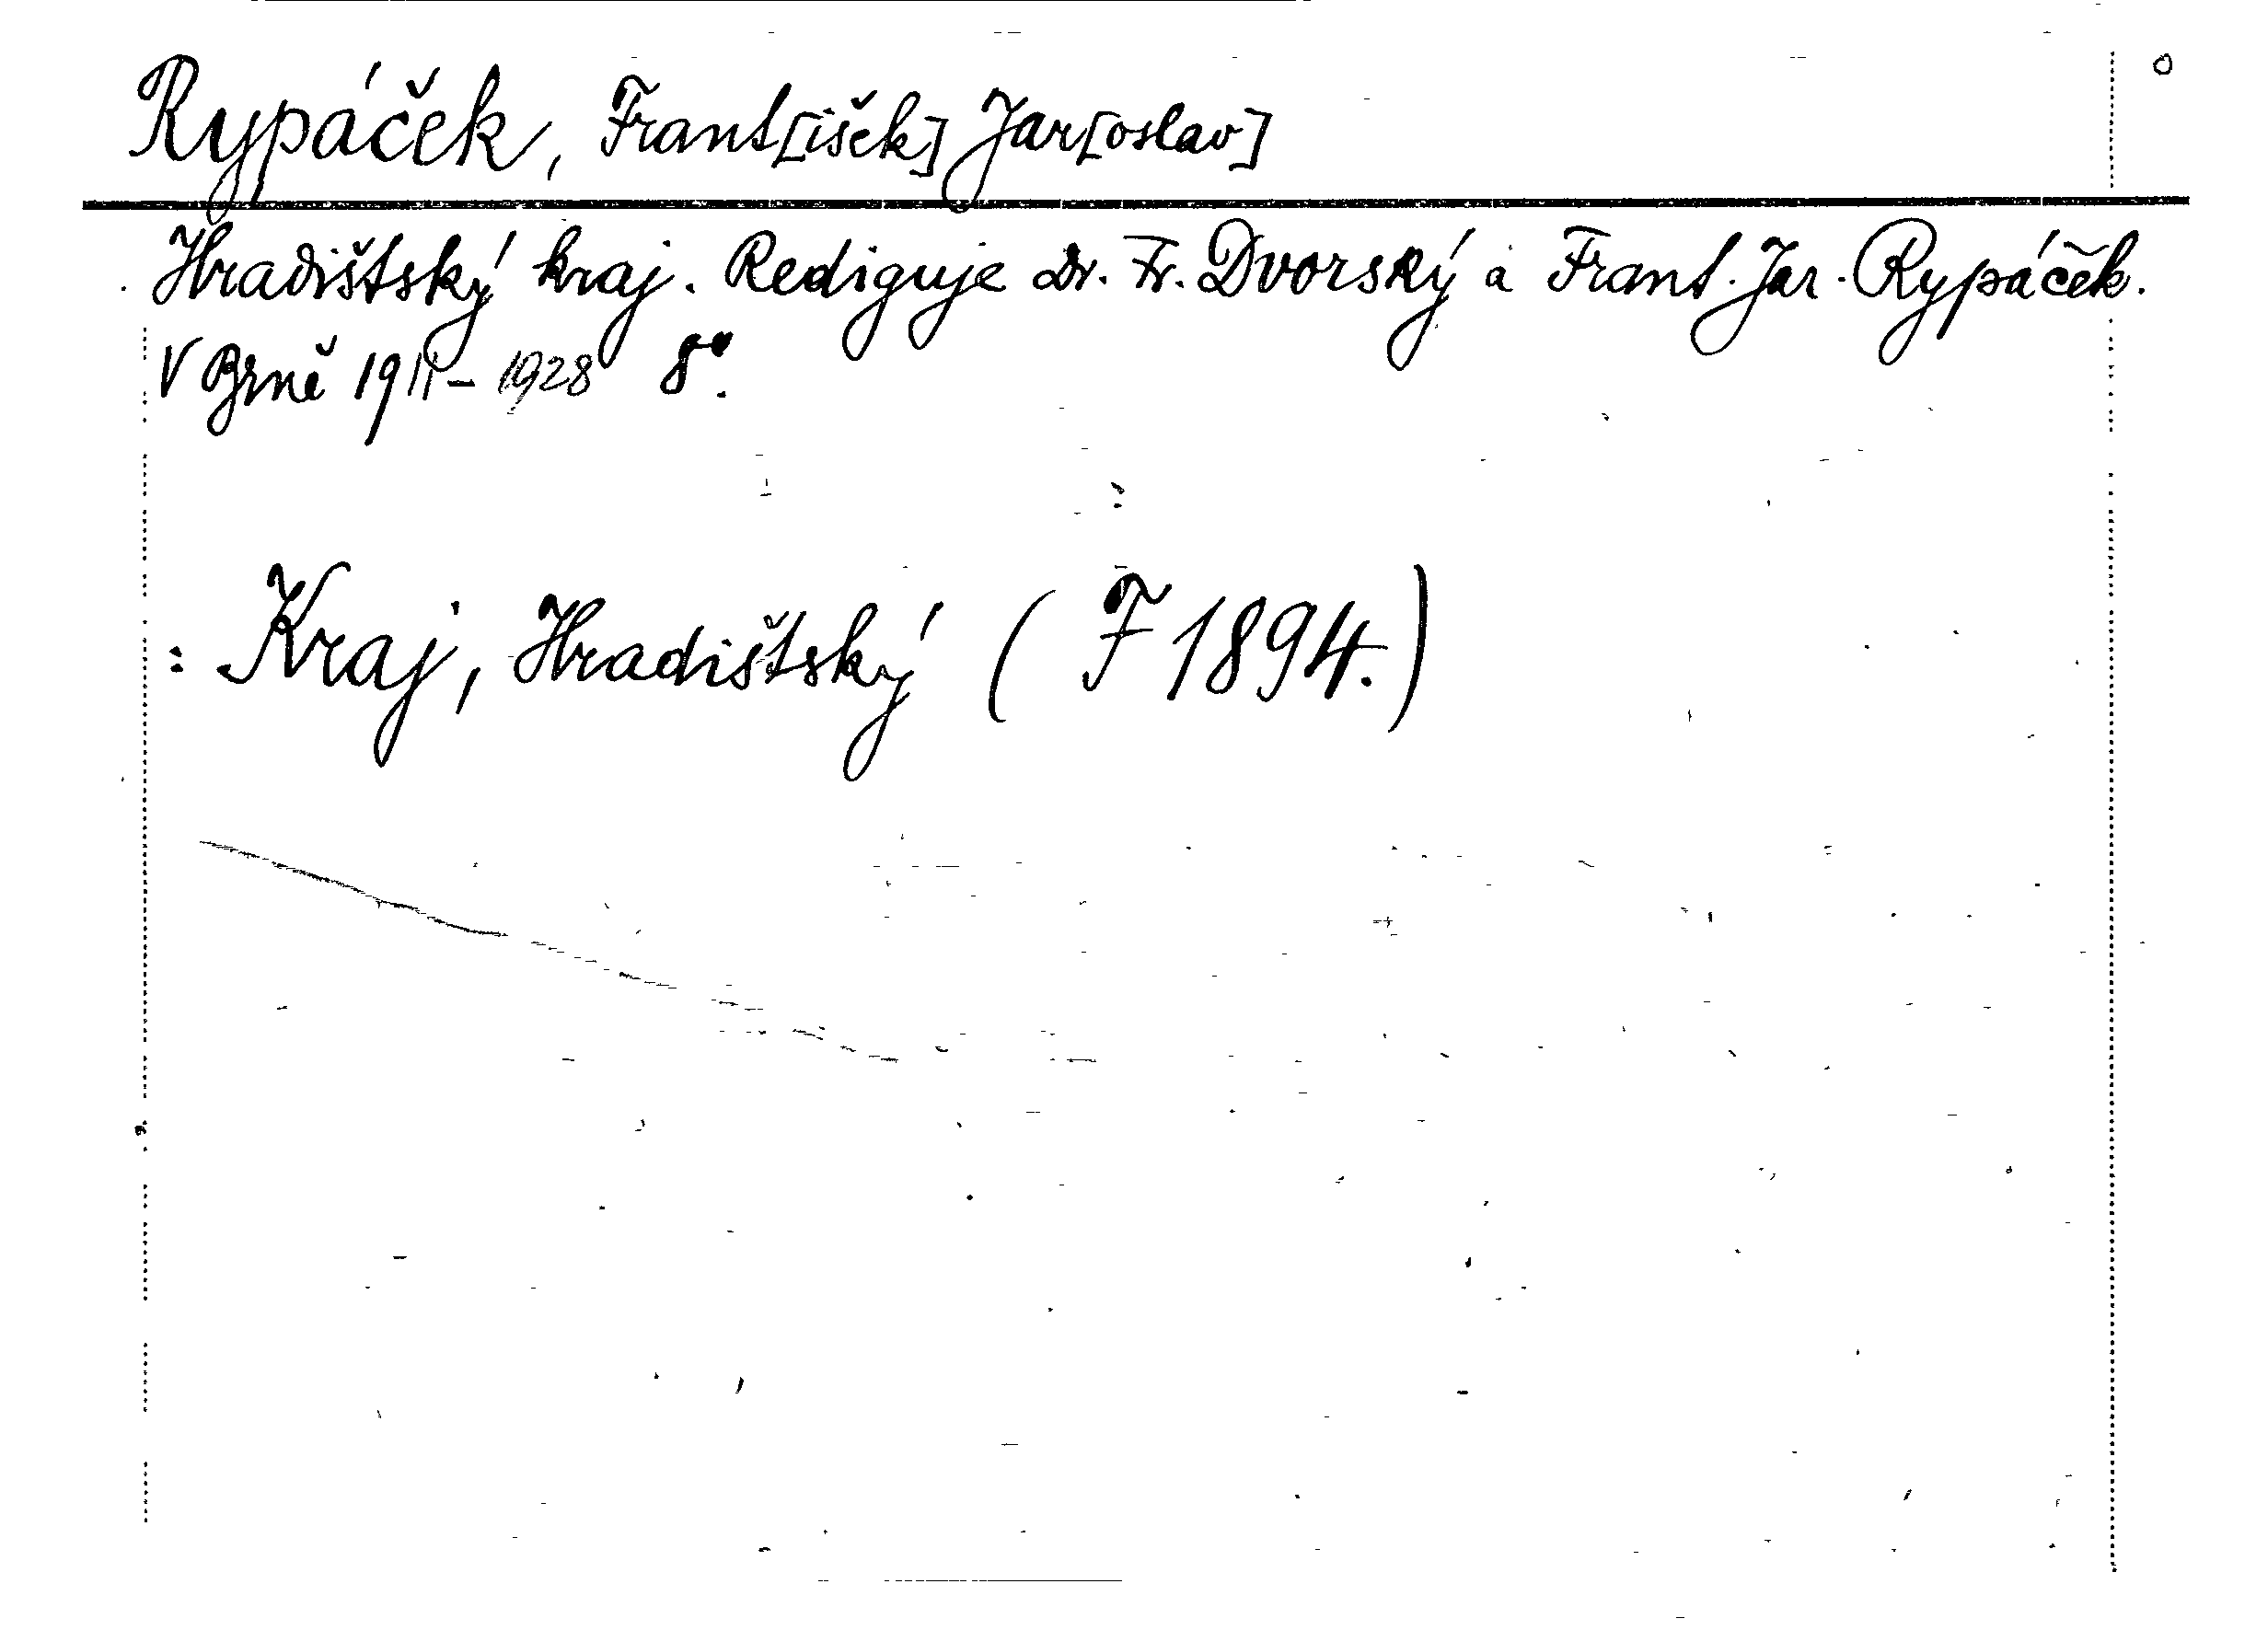 Rypáček, Frant[išek] Jar[oslav]
Hradištský kraj. Rediguje Dr. Fr. Dvorský a Frant. Jar. Rypáček.
V Brně 1911-1928 8°.
: Kraj, Hradištský (F 1894.)